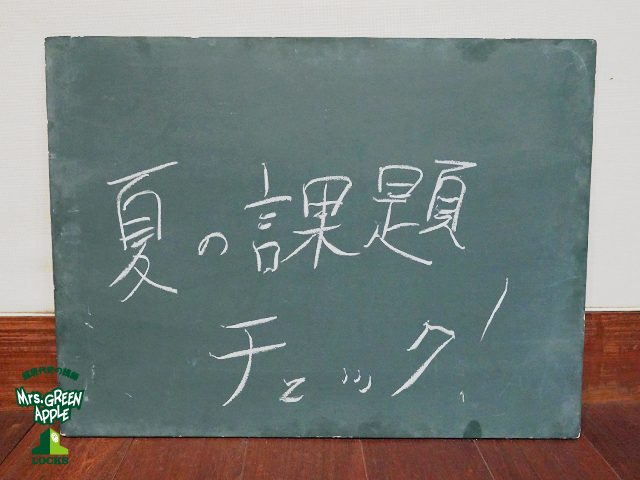 夏の課題
チェック!
Mrs. GREEN
APPLE
LOCKS